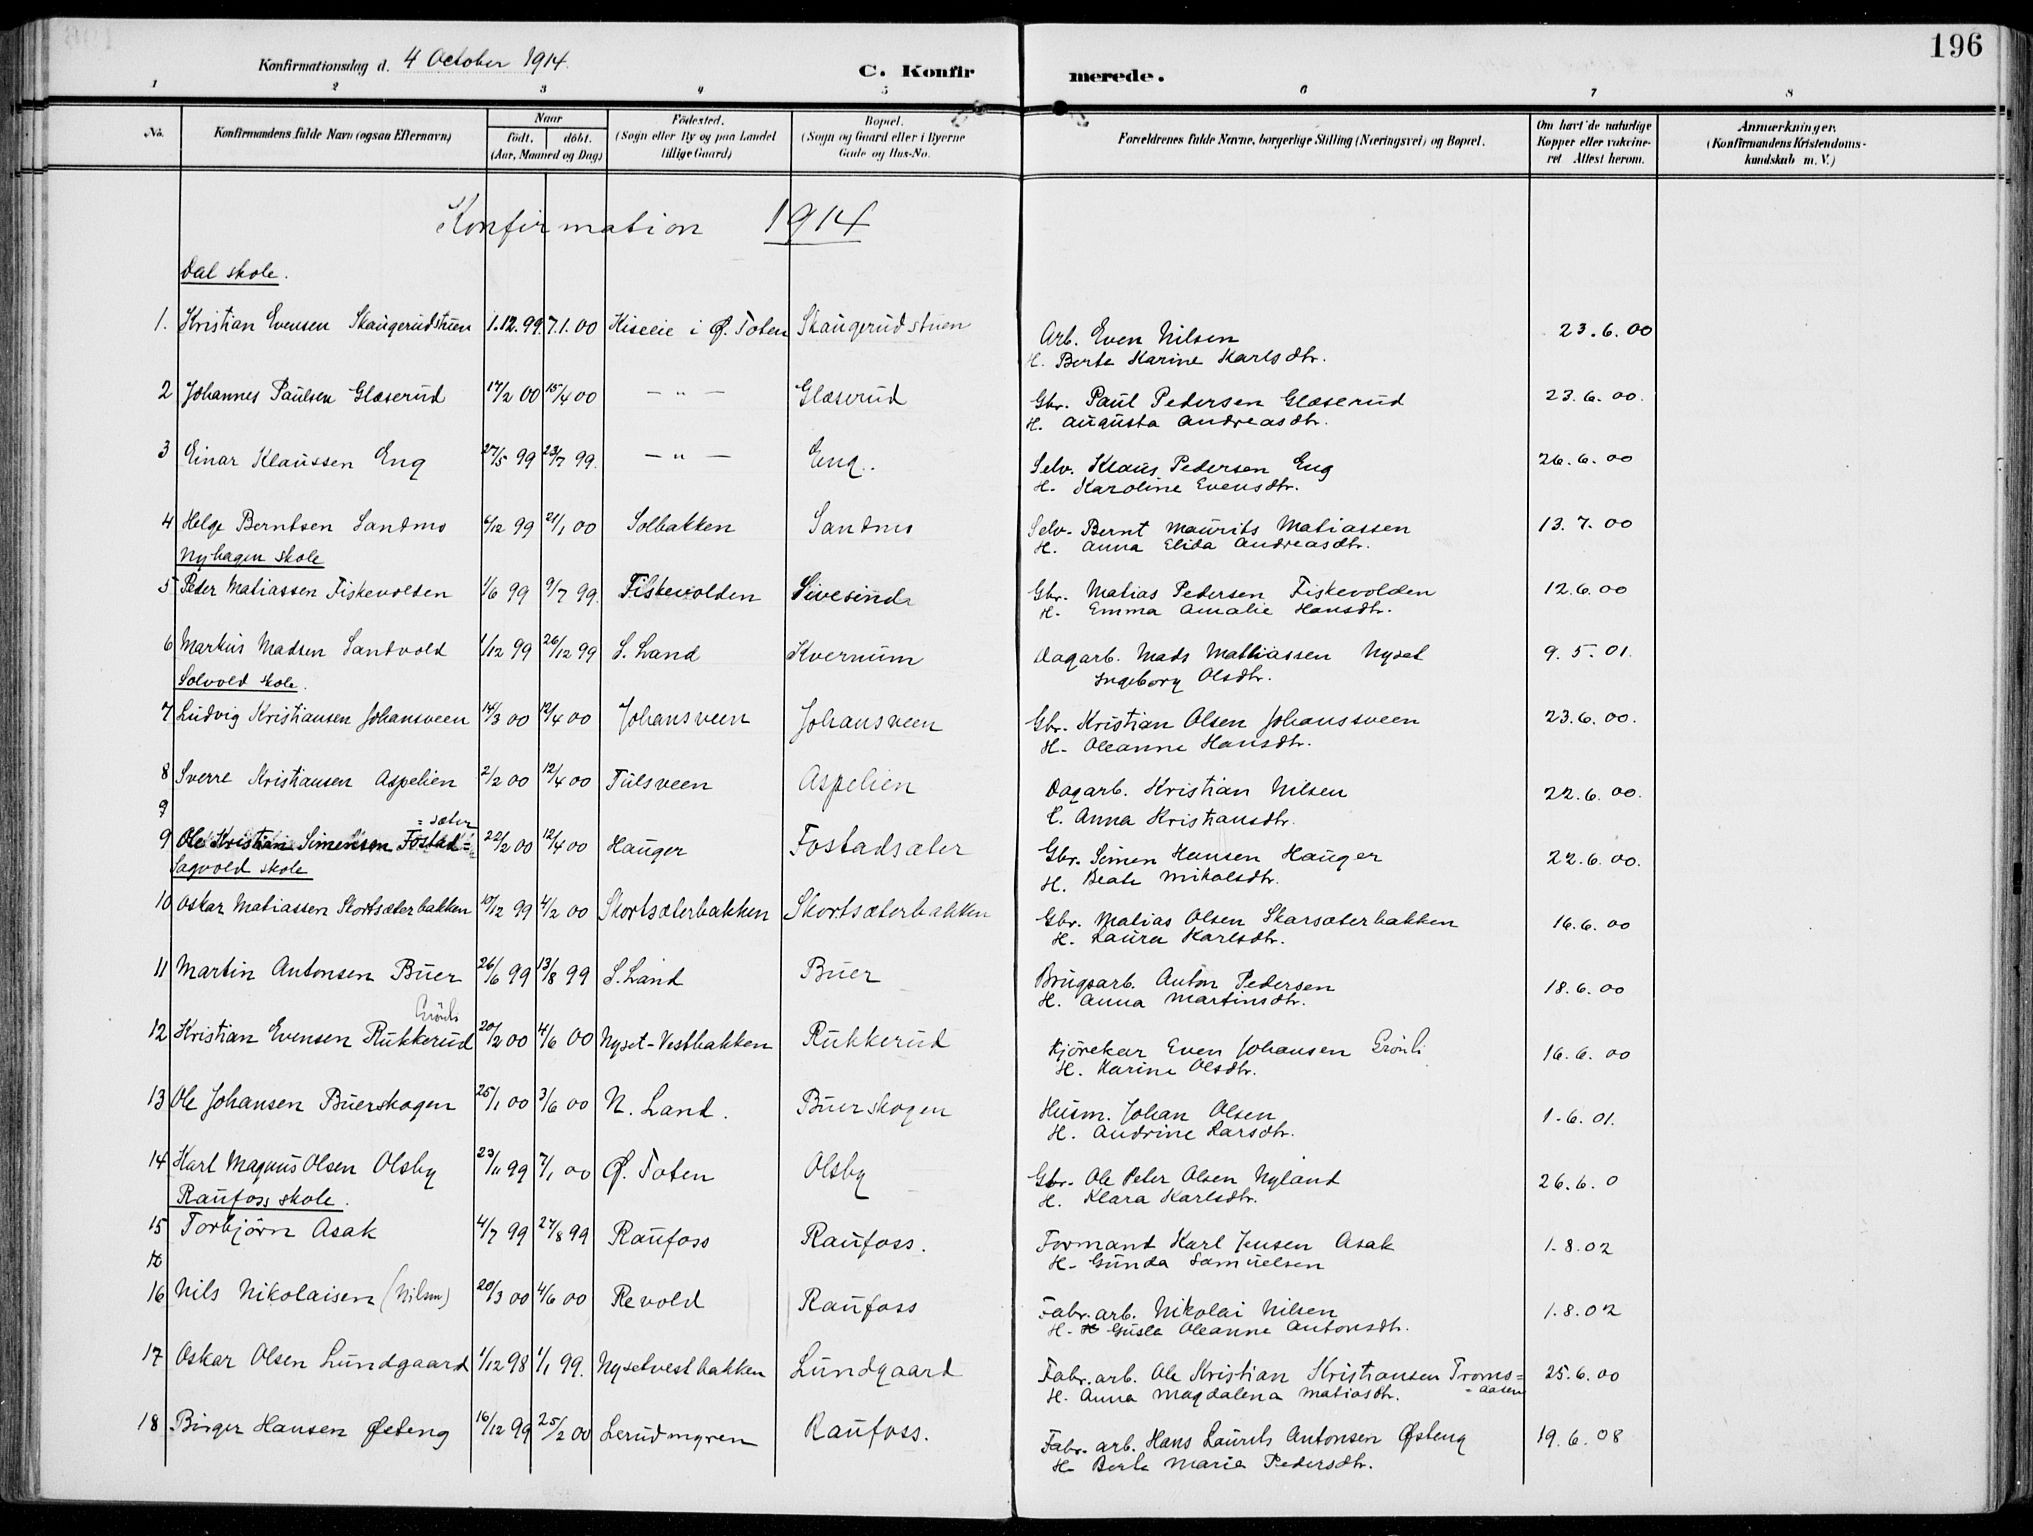 196
Konfirmationsdag d. 4 October 1914.
C. Konfirmerede.
1 2 3 4 5 6 7 8
No.
Konfirmandens fulde Navn (ogsaa Efternavn)
Naar
födt. döbt.
(Aar, Maaned og Dag)
Födested.
(Sogn eller By og paa Landet
tillige Gaard)
Bopæl.
(Sogn og Gaard eller i Byerne
Gade og Hus-No.
Forældrenes fulde Navne, borgerlige Stilling (Næringsvei) og Bopæl.
Om havt de naturlige
Kopper eller vakcine-
ret. Attest herom.
Anmærkninger.
(Konfirmandens Kristendoms-
kundskab m. V.)
Konfirmation 1914
Dal skole.
1. Kristian Evensen Skaugerudstuen 1.12.99. 7.1.00 Kiseeie i Ø. Toten Skaugerudstuen Arb. Even Nilsen 23.6.00
H. Berte Karine Karlsdtr.
2 Johannes Paulsen Glæserud 17/2 00 15/4 00 — " — Glæserud Gbr. Paul Pedersen Glæserud 23.6.00.
H. Augusta Andreasdtr.
3 Einar Klaussen Eng 27/5 99 23/7 99. — " — Eng.. Selv. Klaus Pedersen Eng 26.6.00
H. Karoline Evensdtr.
4 Helge Berntsen Sandmo 6/12 99 21/1 00 Solbakken Sandmo Selv. Bernt Maurits Matiassen 13.7.00
H. Anna Elida Andreasdtr.
Nyhagen skole
5 Peder Matiassen Fiskevolden 1/6 99 9/7 99. Fiskevolden Sivesinda Gbr. Matias Pedersen Fiskevolden 12.6.00
H. Emma Amalie Hansdtr.
6 Markus Madsen Sandvold 1/12 99 26/12 99 S. Land Kvernum Dagarb. Mads Mathiassen Nyset 9.5.01.
Ingeborg Olsdtr.
Solvold skole.
7 Ludvig Kristiansen Johansveen 14/3 00 12/4 00 Johansveen Johansveen Gbr. Kristian Olsen Johanssveen 23.6.00.
H. Oleanne Hansdtr.
8 Sverre Kristiansen Aspelien 2/2 00 12/4 00 Tulsveen Aspelien Dagarb. Kristian Nilsen 22.6.00.
Anna Kristiansdtr.
9
= sæter
9 Ole Kristian Simensen Fostad= 22/2 00 12/4 00 Hauger Fostadsæter Gbr. Simen Hansen Hauger 22.6.00.
H. Beate Mikalsdtr.
Sagvold skole
10 Oskar Matiassen Skortsæterbakken 10/12 99 4/2 00 Skortsæterbakken Skortsæterbakken Gbr. Matias Olsen Skarsæterbakken 16.6.00
H. Laura Karlsdtr.
11 Martin Antonsen Buer 26/6 99 13/8 99 S. Land Buer Brugsarb. Anton Pedersen 18.6.00
H. Anna Martinsdtr.
Grönli
12 Kristian Evensen Rukkerud 20/2 00 4/6 00 Nyset-Vestbakken Rukkerud Kjörekar Even Johansen Grönli 16.6.00
H. Karine Olsdtr.
13 Ole Johansen Buerskogen 25/1 00 3/6 00 N. Land. Buerskogen Husm. Johan Olsen 1.6.01.
H. Andrine Larsdtr.
14 Karl Magnus Olsen Olsby 23/11 99 7/1 00 Ø. Toten Olsby Gbr. Ole Peter Olsen Nyland 26.6.0
H. Klara Karlsdtr.
Raufoss skole.
15 Torbjörn Asak 4/7 99 27/8 99 Raufoss Raufoss. Formand Karl Jensen Asak 1.8.02
H. Gunda Samuelsen
16 Nils Nikolaisen (Nilsen) 20/3 00 4/6 00 Revold Raufoss Fabr. arb. Nikolai Nilsen 1.8.02
H. Gusta Oleanne Antonsdtr.
17 Oskar Olsen Lundgaard 1/12 98 1/1 99. Nysetvestbakken Lundgaard Fabr. arb. Ole Kristian Kristiansen Troms= 25.6.00
=aasen
H. Anna Magdalena Matiasdtr.
18 Birger Hansen Østeng 16/12 99 25/2 00 Lerudmyren Raufoss. Fabr. arb. Hans Laurits Antonsen Østeng 19.6.08
H Berte Marie Pedersdtr.